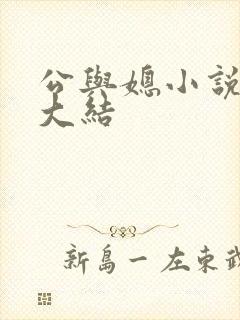 公與媳小說
大結
新島一左東武